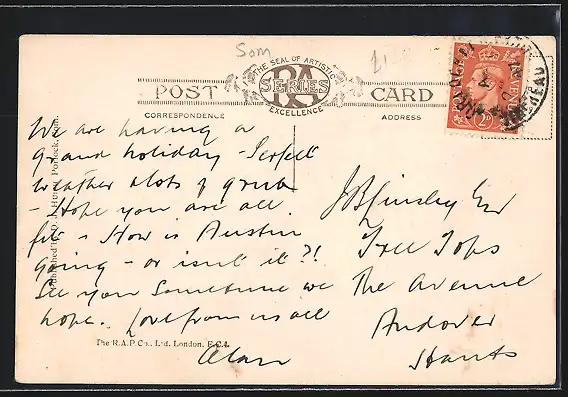 Som
THE SEAL OF ARTISTIC
POST RA SERIES CARD
EXCELLENCE
CORRESPONDENCE ADDRESS
2D
We are having a
grand holiday - Perfect
weather & lots of grub
- Hope you are all
fit - How is Austin
going - or isn't it ?!
See you sometime we
hope. Love from us all
Alan
J B Linsley Esq
Tree Tops
The Avenue
Andover
Hants
Published by
Porlock,
The R.A.P. Co., Ltd. London, E.C.4.